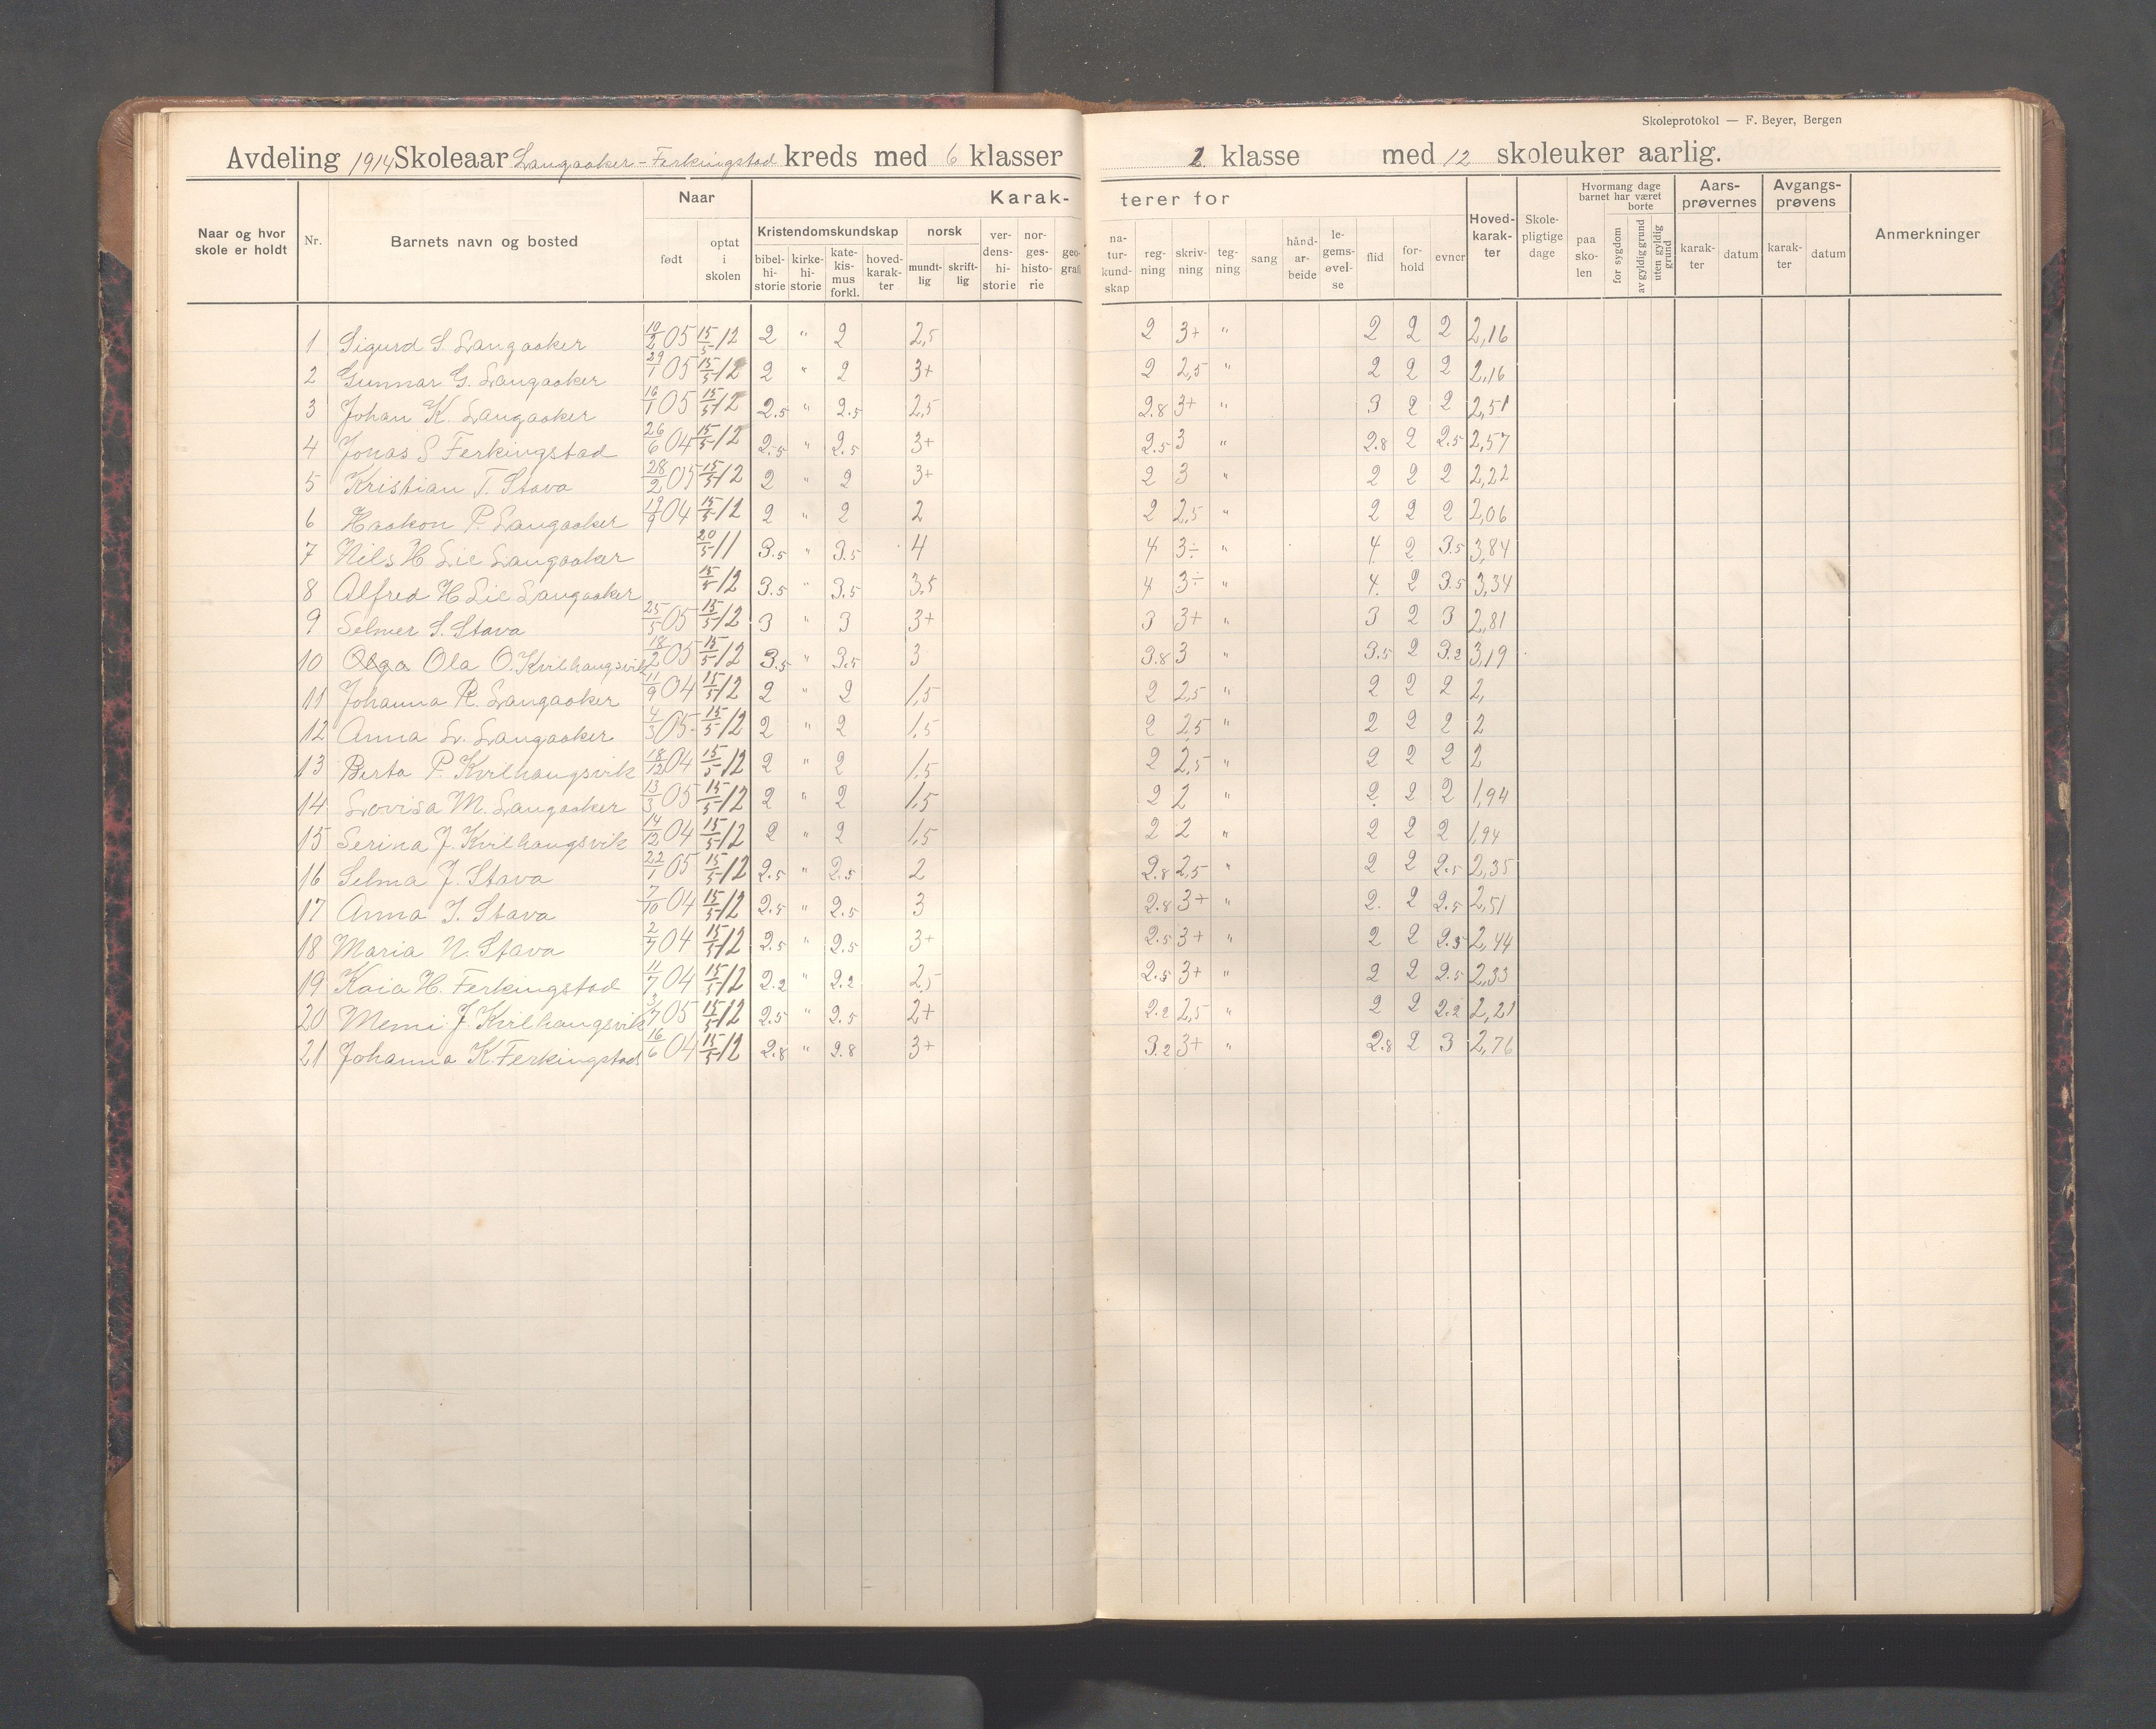 Skoleprotokol — F. Beyer, Bergen
Avdeling 1914 Skoleaar Langaaker - Ferkingstad kreds med 6 klasser 2 klasse med 12 skoleuker aarlig.
Naar og hvor skole er holdt Nr. Barnets navn og bosted Naar født optat i skolen Karakterer for Kristendomskundskap bibelhistorie kirkehistorie katekismus forkl. hovedkarakter norsk mundtlig skriftlig verdenshistorie norgeshistorie geografi naturkundskap regning skrivning tegning sang håndarbeide legemsøvelse flid forhold evner Hovedkarakter Skolepligtige dage Hvormang dage barnet har været paa skolen borte for sygdom av gyldig grund uten gyldig grund Aarsprøvernes karakter datum Avgangsprøvens karakter datum Anmerkninger
1 Sigurd S. Langaaker 10/2 05 15/5 12 2 " 2 2,5 2 3+ " 2 2 2 2,16
2 Gunnar G. Langaaker 29/1 05 15/5 12 2 " 2 3+ 2 2,5 " 2 2 2 2,16
3 Johan K. Langaaker 16/1 05 15/5 12 2.5 " 2.5 2,5 2.8 3+ " 3 2 2 2,51
4 Jonas S Ferkingstad 26/6 04 15/5 12 2.5 " 2.5 3+ 2.5 3 " 2.8 2 2.5 2,57
5 Kristian T. Stava 28/2 05 15/5 12 2 " 2 3+ 2 3 " 2 2 2 2,22
6 Haakon P. Langaaker 19/9 04 15/5 12 2 " 2 2 2 2,5 " 2 2 2 2,06
7 Nils H Lie Langaaker 20/5 11 3.5 " 3.5 4 4 3÷ " 4 2 3.5 3,84
8 Alfred H Lie Langaaker 15/5 12 3.5 " 3.5 3,5 4 3÷ " 4. 2 3.5 3,34
9 Selmer S. Stava 25/5 05 15/5 12 3 " 3 3+ 3 3+ " 3 2 3 2,81
10 Olga Ola O. Kvilhaugsvik 18/2 05 15/5 12 3.5 " 3.5 3 3.8 3 " 3.5 2 3.2 3,19
11 Johanna R. Langaaker 11/9 04 15/5 12 2 " 2 1,5 2 2,5 " 2 2 2 2,
12 Anna L. Langaaker 4/3 05 15/5 12 2 " 2 1,5 2 2,5 " 2 2 2 2
13 Berta P. Kvilhaugsvik 18/12 04 15/5 12 2 " 2 1,5 2 2,5 " 2 2 2 2
14 Lovisa M. Langaaker 13/3 05 15/5 12 2 " 2 1,5 2 2 " 2 2 2 1,94
15 Serina J. Kvilhaugsvik 14/12 04 15/5 12 2 " 2 1,5 2 2 " 2 2 2 1,94
16 Selma J. Stava 22/1 05 15/5 12 2.5 " 2.5 2 2.8 2,5 " 2 2 2.5 2,35
17 Anna J. Stava 7/10 04 15/5 12 2.5 " 2.5 3 2.8 3+ " 2. 2 2.5 2,51
18 Maria N. Stava 2/7 04 15/5 12 2.5 " 2.5 3+ 2.5 3+ " 2 2 2.5 2,44
19 Kaia H. Ferkingstad 11/7 04 15/5 12 2.2 " 2.2 2,5 2.5 3+ " 2 2 2.5 2,33
20 Memi J. Kvilhaugsvik 3/7 05 15/5 12 2.5 " 2.5 2+ 2.2 2,5 " 2 2 2.2 2,21
21 Johanna K. Ferkingstad 16/6 04 15/5 12 2.8 " 2.8 3+ 3.2 3+ " 2.8 2 3 2,76